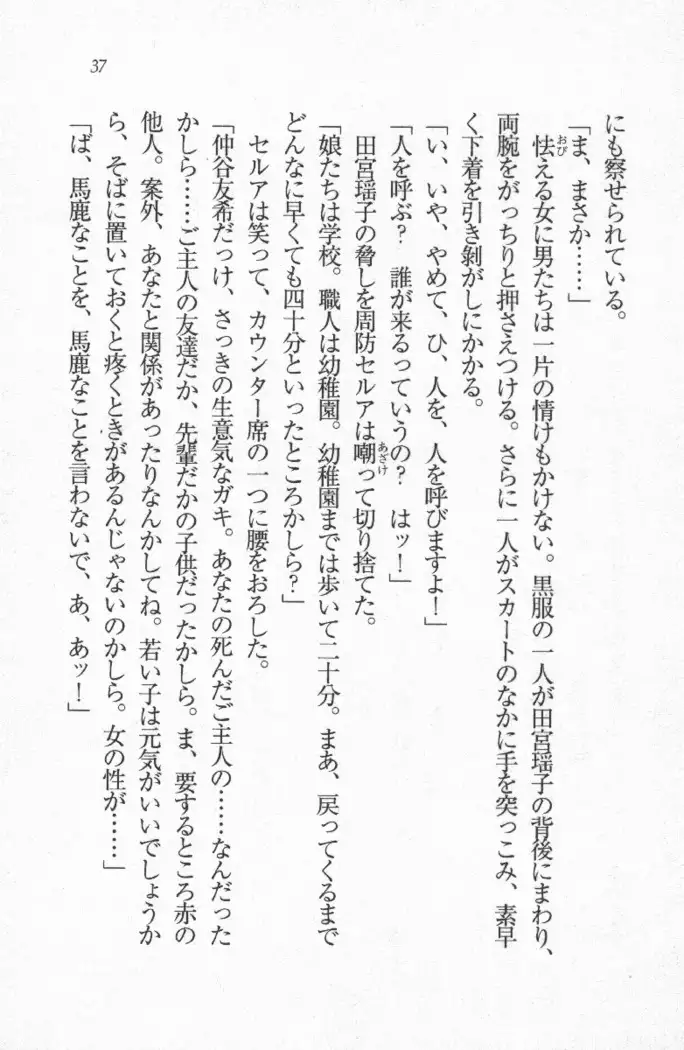 37
にも察せられている。
「ま、まさか……」
怯える女に男たちは一片の情けもかけない。黒服の一人が田宮瑶子の背後にまわり、
両腕をがっちりと押さえつける。さらに一人がスカートのなかに手を突っこみ、素早
く下着を引き剝がしにかかる。
「い、いや、やめて、ひ、人を、人を呼びますよ！」
「人を呼ぶ？　誰が来るっていうの？　はッ！」
田宮瑶子の脅しを周防セルアは嘲って切り捨てた。
「娘たちは学校。職人は幼稚園。幼稚園までは歩いて二十分。まあ、戻ってくるまで
どんなに早くても四十分といったところかしら？」
セルアは笑って、カウンター席の一つに腰をおろした。
「仲谷友希だっけ、さっきの生意気なガキ。あなたの死んだご主人の……なんだった
かしら……ご主人の友達だか、先輩だかの子供だったかしら。ま、要するところ赤の
他人。案外、あなたと関係があったりなんかしてね。若い子は元気がいいでしょうか
ら、そばに置いておくと疼くときがあるんじゃないのかしら。女の性が……」
「ば、馬鹿なことを、馬鹿なことを言わないで、あ、あッ！」